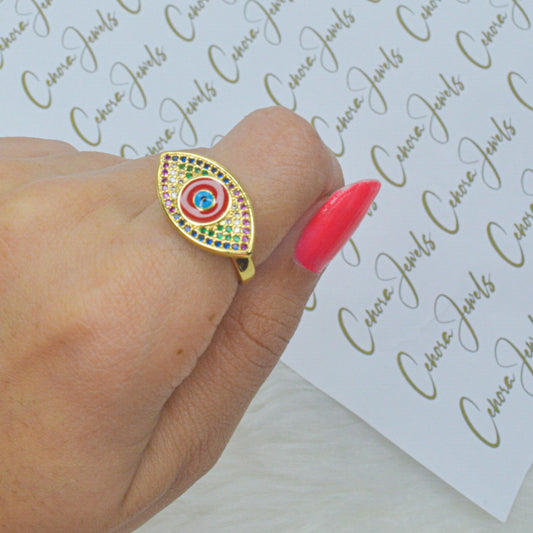 Cehora Jewels
Cehora Jewels
Cehora Jewels
Cehora Jewels
Cehora Jewels
Cehora Jewels
Cehora Jewels
Cehora Jewels
Cehora Jewels
Cehora Jewels
Cehora Jewels
Cehora Jewels